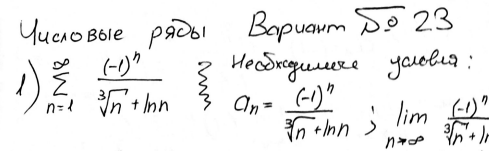 Числовые ряды Вариант №23
1) \sum_{n=1}^{\infty} \frac{(-1)^n}{\sqrt[3]{n}+\ln n} } Необходимые условия:
a_n = \frac{(-1)^n}{\sqrt[3]{n}+\ln n} ; \lim_{n \to \infty} \frac{(-1)^n}{\sqrt[3]{n}+l